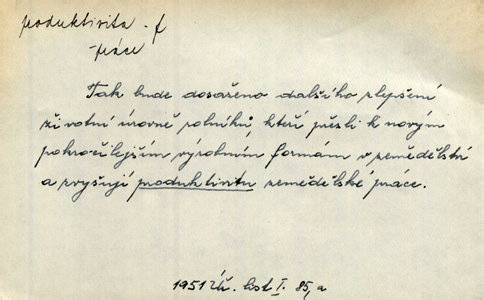 produktivita -f
-práce
Tak bude dosaženo dalšího zlepšení
životní úrovně rolníků, kteří přešli k novým
pokročilejším výrobním formám v zemědělství
a zvyšují produktivitu zemědělské práce.
1951 Úř. list I. 85, a